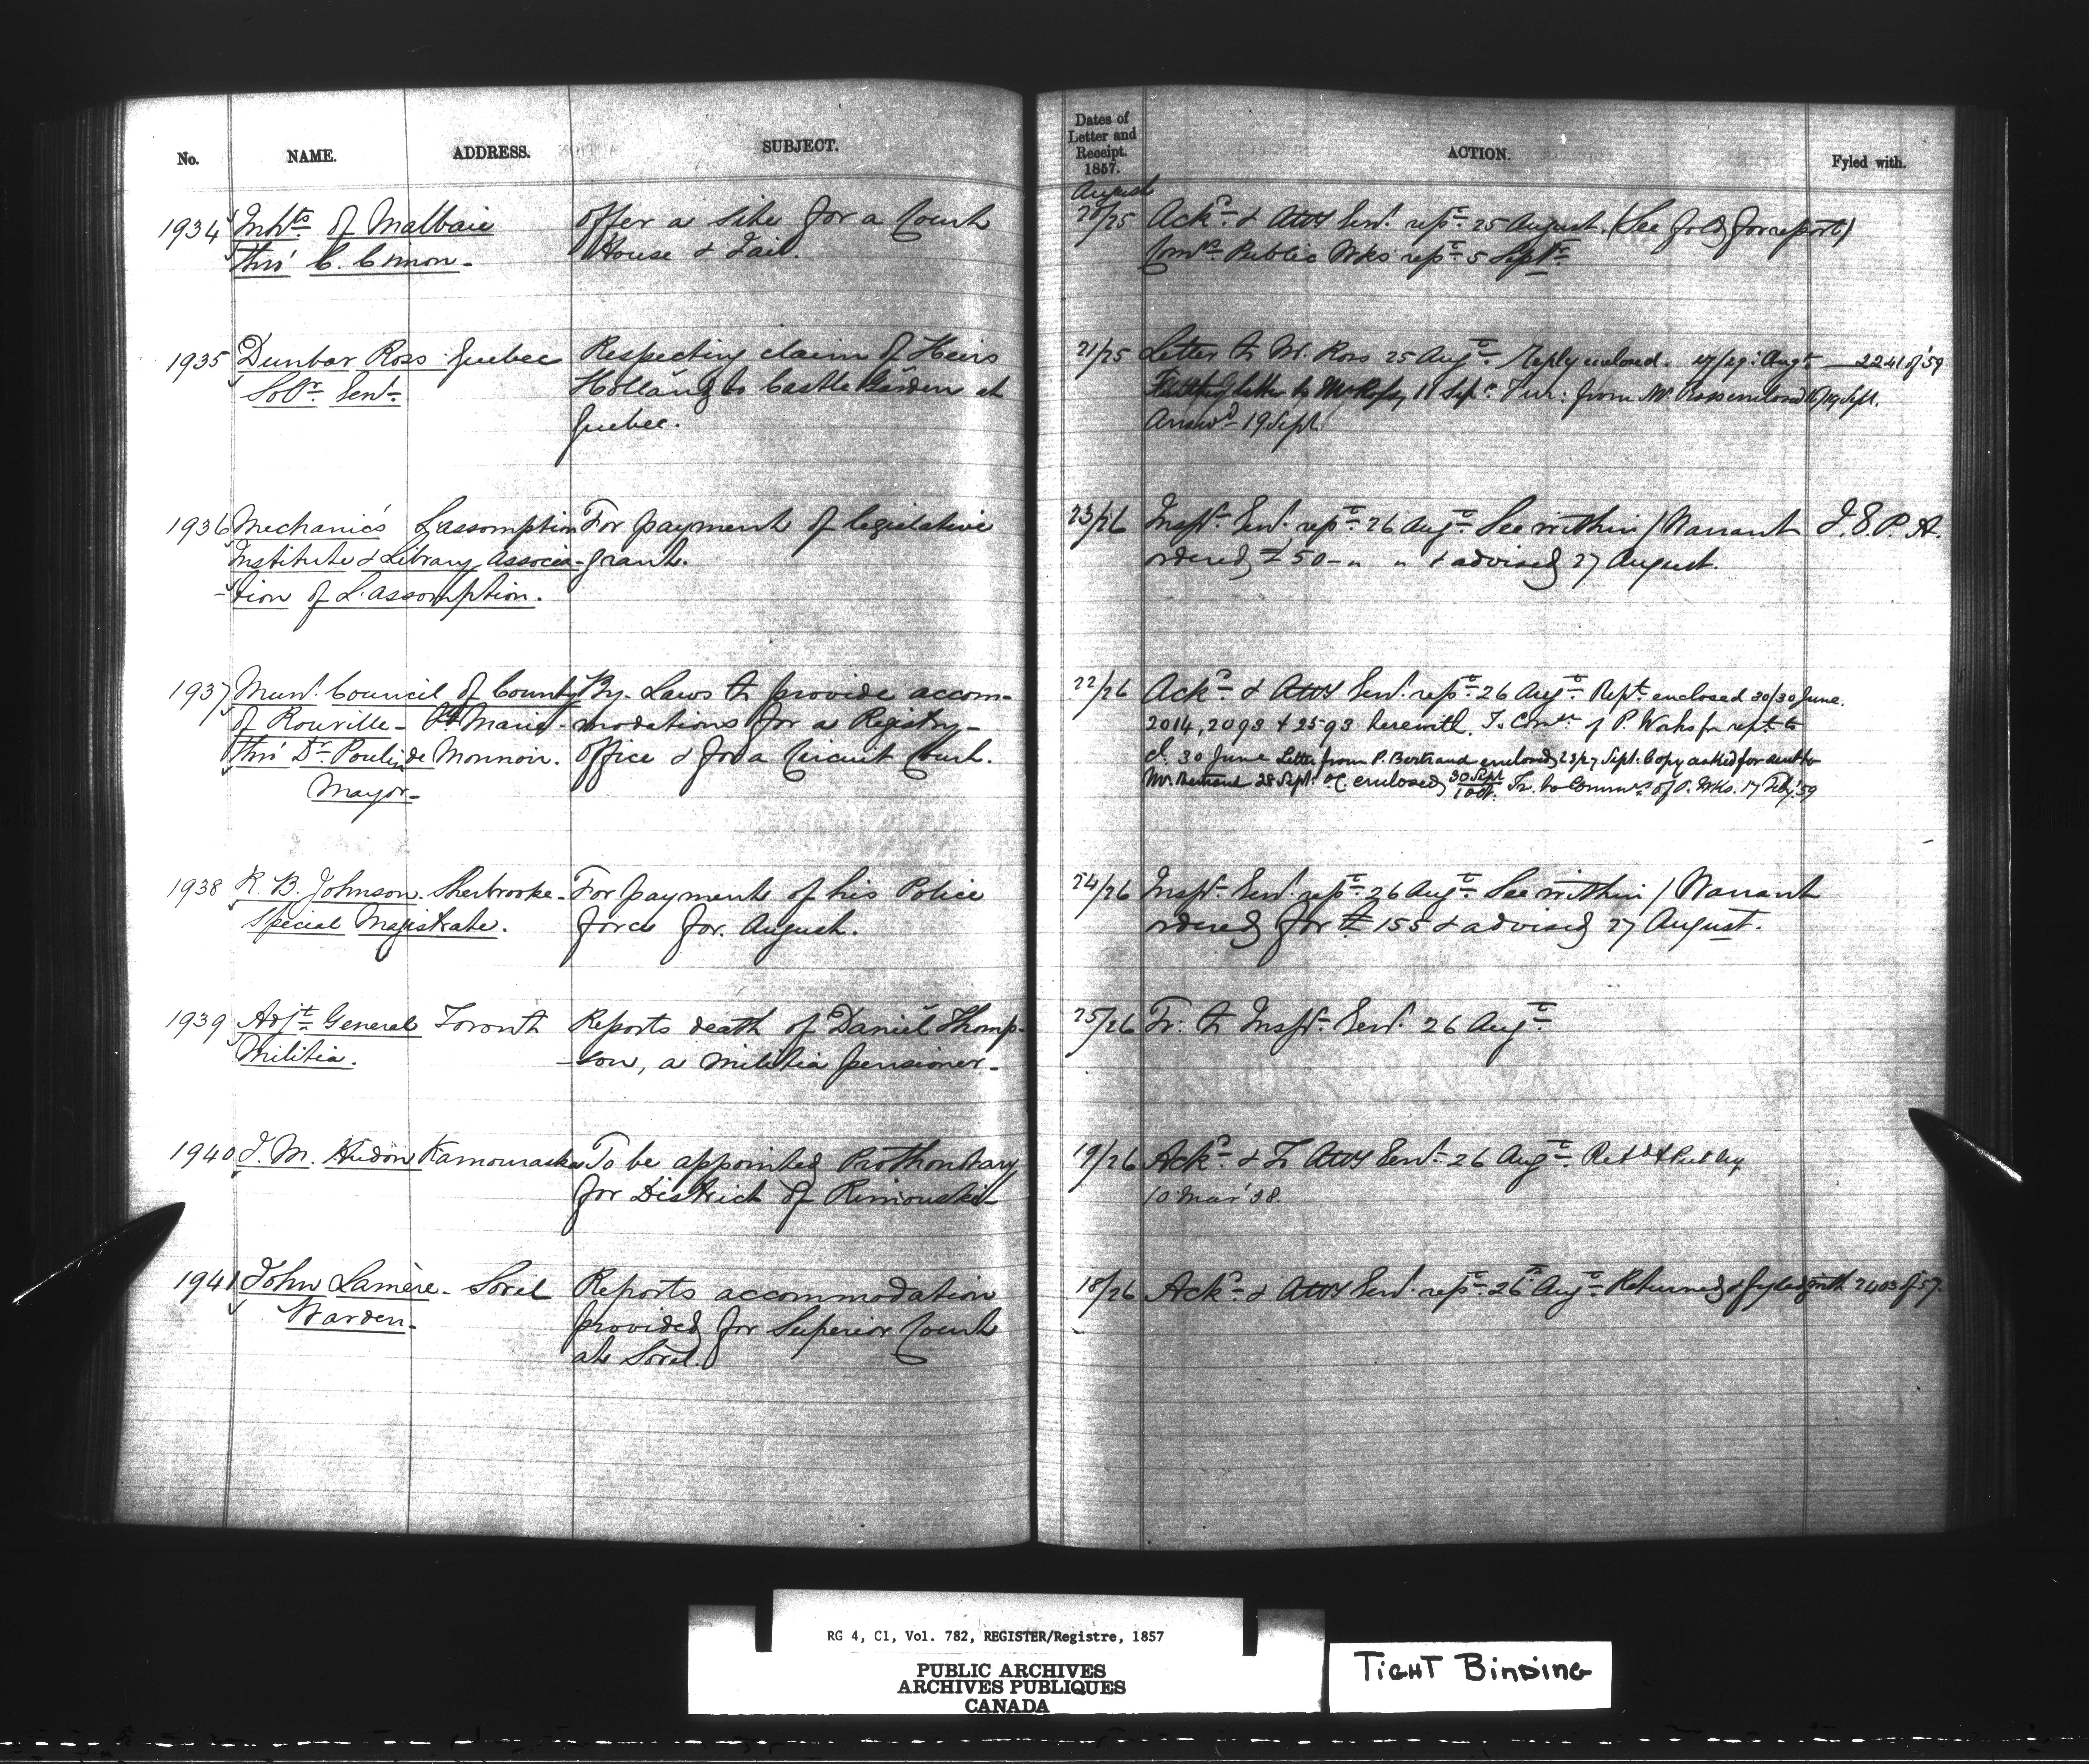 No. NAME. ADDRESS. SUBJECT.
Dates of Letter and Receipt. 1857. ACTION. Fyled with.
August
1934 Inhts of Malbaie offer a site for a Court 20/25 Ackd & Atty Genl. repd 25 August. (See fold for report)
thro' C. Cimon - House & Jail. Comrs Public Wks repd 5 Sept.
1935 Dunbar Ross Quebec Respecting claim of Heirs 21/25 Letter to Mr. Ross 25 Augt. Reply enclosed. 27/29 Augt 2241 of '59
Solr. Genl. Holland to Castle Garden at letter to Mr Ross, 11 Sept. Fur: from Mr. Ross enclosed 16/19 Sept.
Quebec. Answd 19 Sept
1936 Mechanic's L'assomption For payment of legislative 23/26 Inspr. Genl. repd 26 Augt. See within / Warrant J.S.P.A.
Institute & Library Associa- grant. ordered £50 - " " & advised 27 August.
-tion of L'assomption.
1937 Munl. Council of County By-Laws to provide accom- 22/26 Ackd & Atty Genl. repd 26 Augt. Rept. enclosed 30/30 June.
of Rouville - Ste Marie - modations for a Registry - 2014, 2093 & 2593 herewith. To Comrs of P. Works for rept. to
thro' Dr. Poulin de Monnoir. office & for a Circuit Court. 30 June Letter from P. Bertrand enclosed 23/27 Sept. Copy asked for sent to
Mayor - Mr Bertrand 28 Sept. enclosed 30 Sept/1 Oct. Tr. to Commrs of P. Wks. 17 Feby '59
1938 R. B. Johnson. Sherbrooke - For payment of his Police 24/26 Inspr. Genl. repd 26 Augt. See within / Warrant
Special Magistrate. force for August. ordered for £155 & advised 27 August.
1939 Adjt. General Toronto Reports death of Daniel Thomp- 25/26 Tr. to Inspr. Genl. 26 Augt
Militia. -son, a militia pensioner -
1940 J. M. Hudon Kamouraska To be appointed Prothonotary 19/26 Ackd & Tr Atty Genl. 26 Augt. Retd & Put by
for District of Rimouski 10 Mar '58.
1941 John Lamère - Sorel Reports accommodation 18/26 Ackd & Atty Genl. repd 26 Augt Returned & fyled with 2403 of '57.
Warden - provided for Superior Court
at Sorel.
RG 4, C1, Vol. 782, REGISTER/Registre, 1857
PUBLIC ARCHIVES
ARCHIVES PUBLIQUES
CANADA
TIGHT BINDING